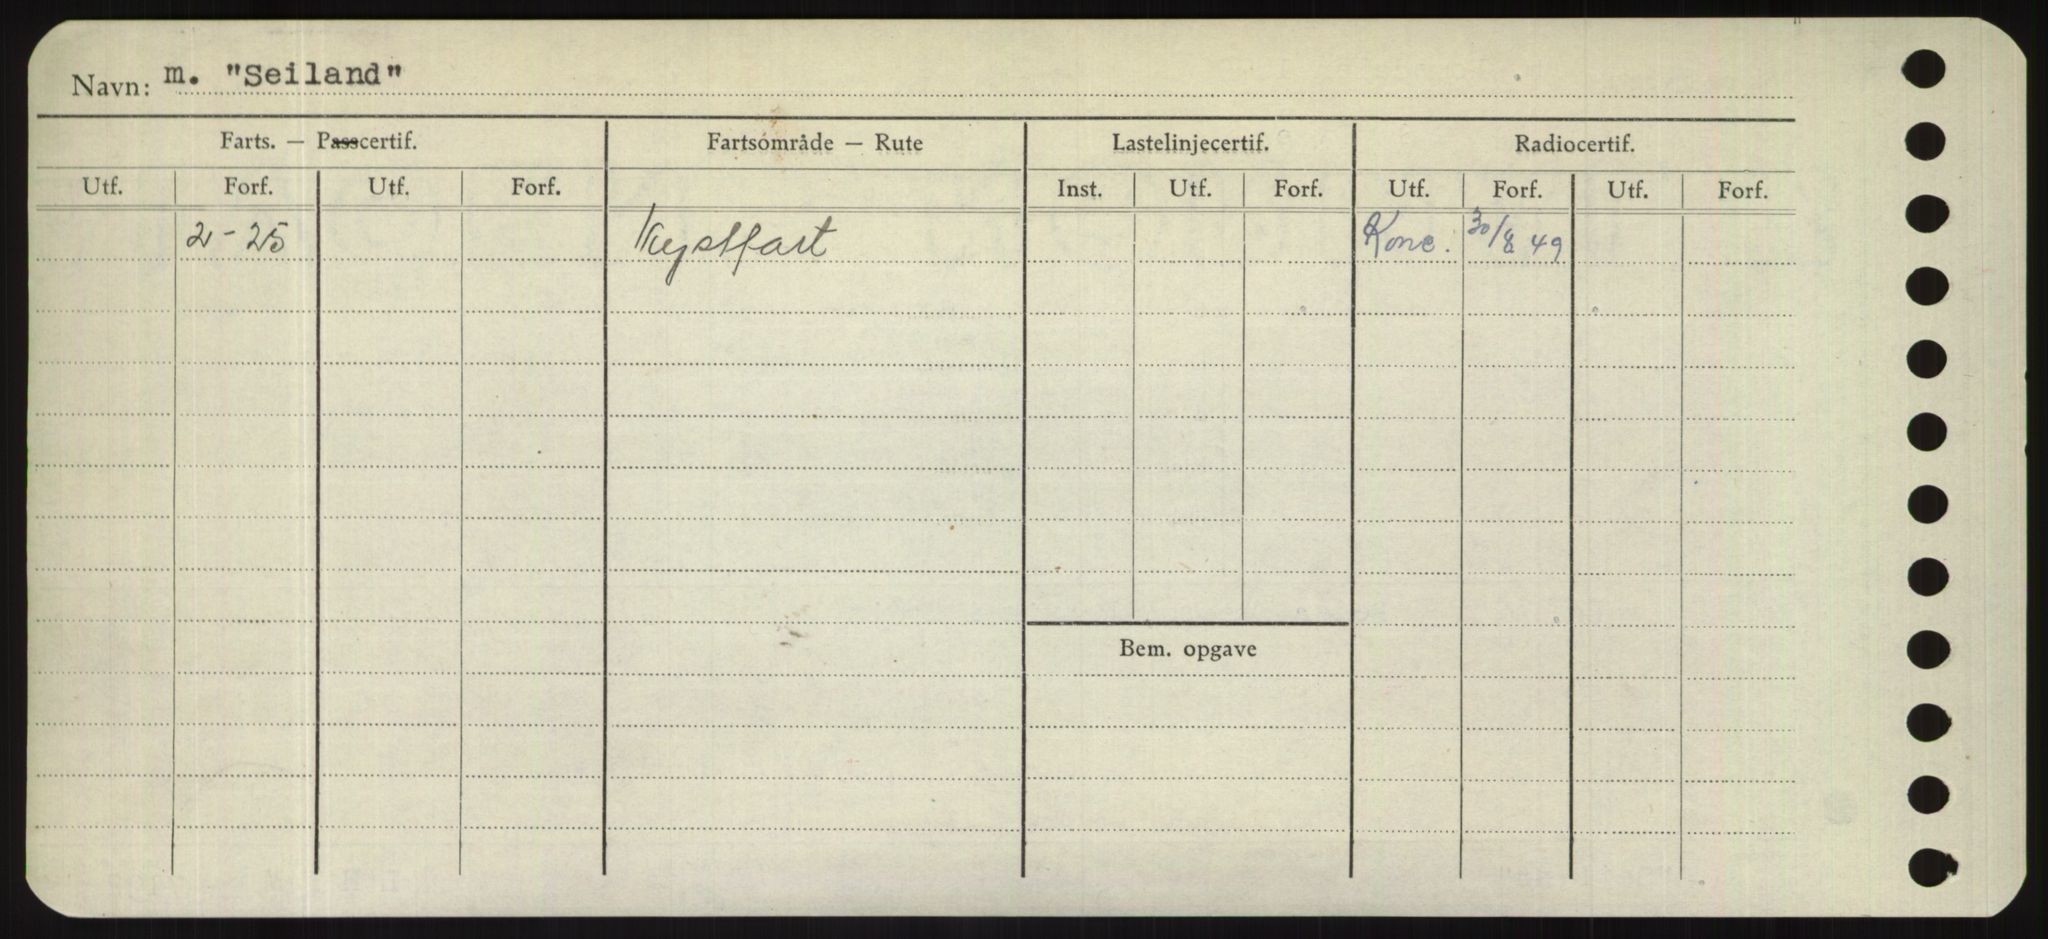 Navn: m. "Seiland"
Farts. — Passcertif. Fartsområde — Rute Lastelinjecertif. Radiocertif.
Utf. Forf. Utf. Forf. Inst. Utf. Forf. Utf. Forf. Utf. Forf.
2-25 Kystfart Konc. 30/8 49
Bem. opgave